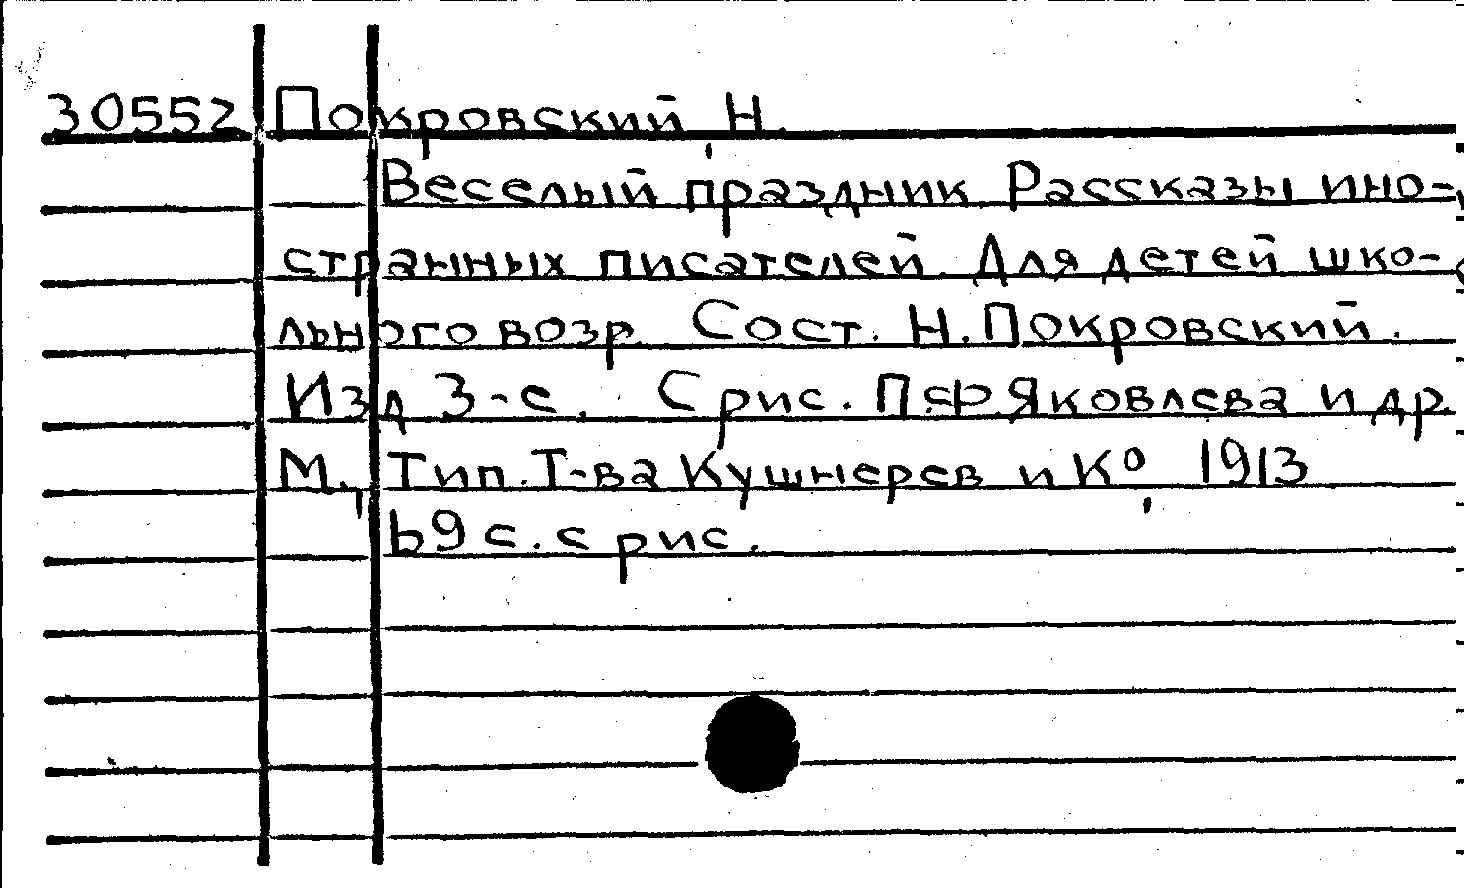 30552 Покровский, Н.
Веселый праздник. Рассказы ино-
странных писателей. Для детей шко-
льного возр. Сост. Н. Покровский.
Изд 3-е. С рис. П.Ф.Яковлева и др.
М., Тип. Т-ва Кушнерев и Ко, 1913
69 с. с рис.